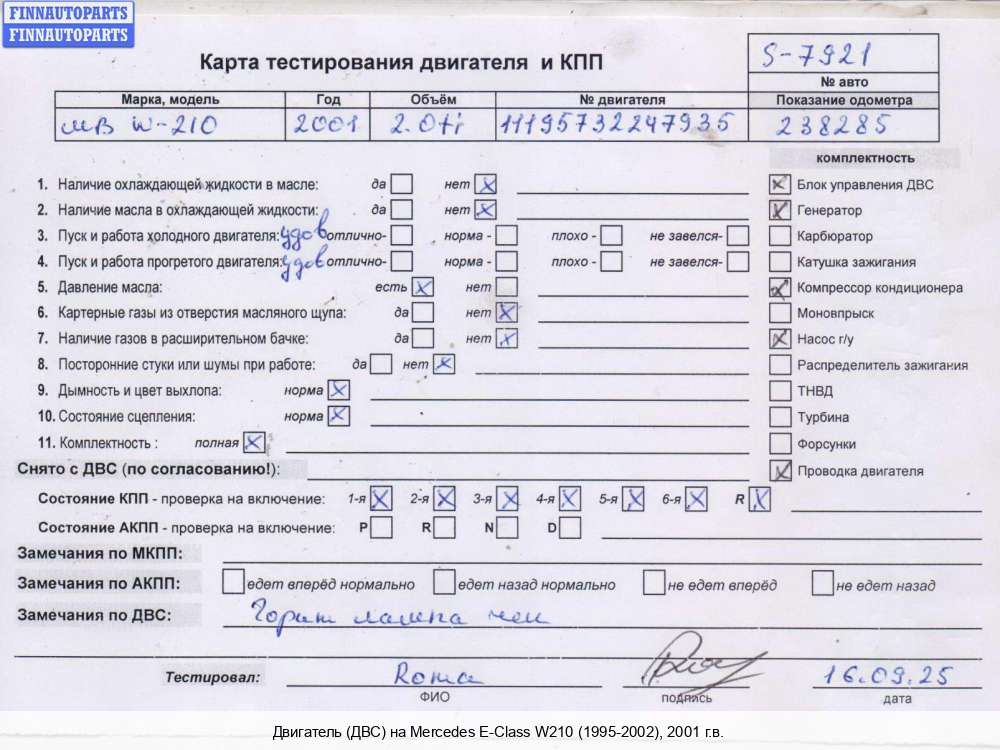 FINNAUTOPARTS
FINNAUTOPARTS
Карта тестирования двигателя и КПП
S-7921
№ авто
Марка, модель Год Объём № двигателя Показание одометра
МВ W-210 2001 2.0ti 11195732247935 238285
комплектность
1. Наличие охлаждающей жидкости в масле: да нет Блок управления ДВС
2. Наличие масла в охлаждающей жидкости: да нет Генератор
3. Пуск и работа холодного двигателя: удов отлично- норма - плохо - не завелся- Карбюратор
4. Пуск и работа прогретого двигателя: удов отлично- норма - плохо - не завелся- Катушка зажигания
5. Давление масла: есть нет Компрессор кондиционера
6. Картерные газы из отверстия масляного щупа: да нет Моновпрыск
7. Наличие газов в расширительном бачке: да нет Насос г/у
8. Посторонние стуки или шумы при работе: да нет Распределитель зажигания
9. Дымность и цвет выхлопа: норма ТНВД
10. Состояние сцепления: норма Турбина
11. Комплектность : полная Форсунки
Снято с ДВС (по согласованию!): Проводка двигателя
Состояние КПП - проверка на включение: 1-я 2-я 3-я 4-я 5-я 6-я R
Состояние АКПП - проверка на включение: P R N D
Замечания по МКПП:
Замечания по АКПП: едет вперёд нормально едет назад нормально не едет вперёд не едет назад
Замечания по ДВС: Горит лампа чек
Тестировал: Roma 16.09.25
ФИО подпись дата
Двигатель (ДВС) на Mercedes E-Class W210 (1995-2002), 2001 г.в.